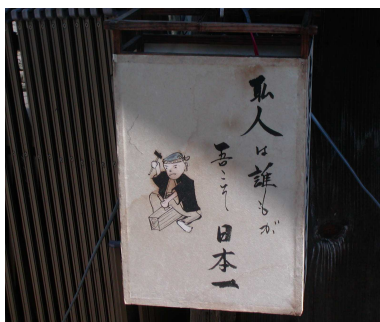 職人は誰もが
吾こそ日本一